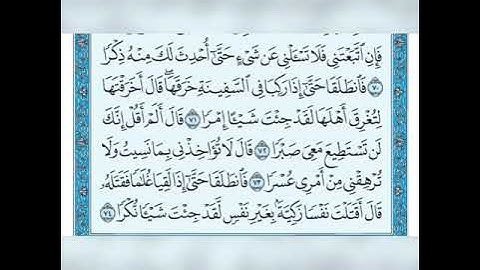 فَإِنِ ٱتَّبَعْتَنِى فَلَا تَسْـَٔلْنِى عَن شَىْءٍ حَتَّىٰٓ أُحْدِثَ لَكَ مِنْهُ ذِكْرًا
﴿٧٠﴾ فَٱنطَلَقَا حَتَّىٰٓ إِذَا رَكِبَا فِى ٱلسَّفِينَةِ خَرَقَهَا ۖ قَالَ أَخَرَقْتَهَا
لِتُغْرِقَ أَهْلَهَا لَقَدْ جِئْتَ شَيْـًٔا إِمْرًا ﴿٧١﴾ قَالَ أَلَمْ أَقُلْ إِنَّكَ
لَن تَسْتَطِيعَ مَعِىَ صَبْرًا ﴿٧٢﴾ قَالَ لَا تُؤَاخِذْنِى بِمَا نَسِيتُ وَلَا
تُرْهِقْنِى مِنْ أَمْرِى عُسْرًا ﴿٧٣﴾ فَٱنطَلَقَا حَتَّىٰٓ إِذَا لَقِيَا غُلَـٰمًا فَقَتَلَهُۥ
قَالَ أَقَتَلْتَ نَفْسًا زَكِيَّةًۢ بِغَيْرِ نَفْسٍ لَّقَدْ جِئْتَ شَيْـًٔا نُّكْرًا ﴿٧٤﴾